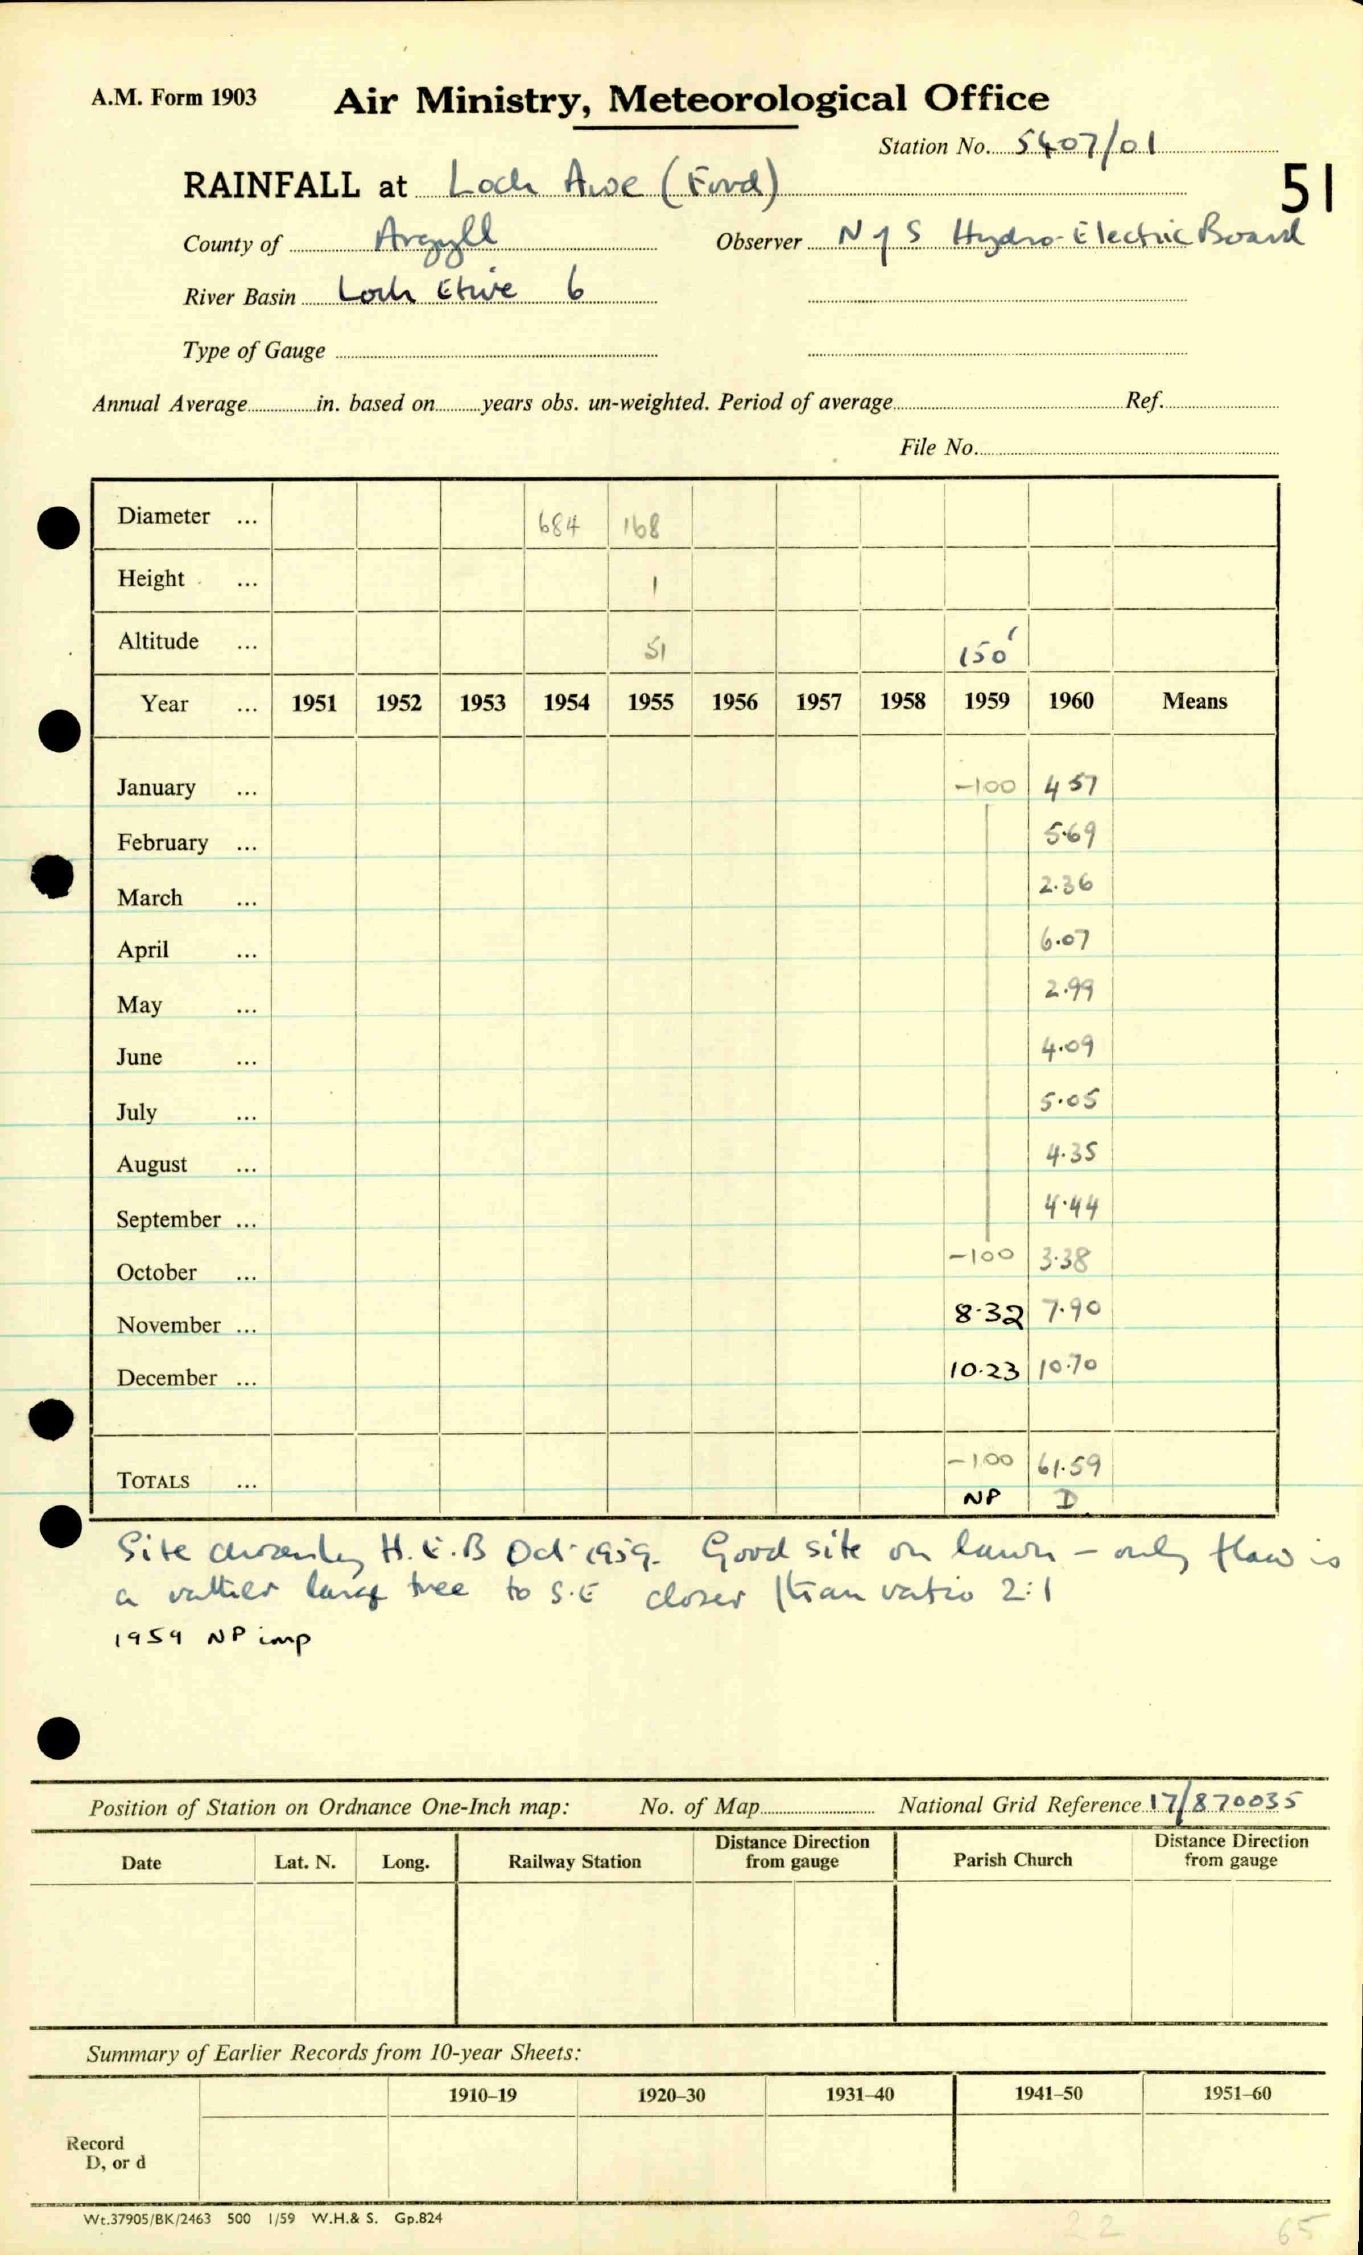 A.M. Form 1903 Air Ministry, Meteorological Office
Station No. 5407/01
RAINFALL at Loch Awe (Ford) 51
County of Argyll Observer N of S Hydro-Electric Board
River Basin Loch Etive 6
Type of Gauge
Annual Average in. based on years obs. un-weighted. Period of average Ref.
File No.
Diameter ... 684 168
Height ... 1
Altitude ... 51 150'
Year ... 1951 1952 1953 1954 1955 1956 1957 1958 1959 1960 Means
January ... -100 4 57
February ... 5.69
March ... 2.36
April ... 6.07
May ... 2.99
June ... 4.09
July ... 5.05
August ... 4.35
September ... 4.44
October ... -100 3.38
November ... 8.32 7.90
December ... 10.23 10.70
TOTALS ... -100 61.59
NP D
Site chosen by H.E.B Oct 1959. Good site on lawn - only flaw is
a rather large tree to S.E closer than ratio 2:1
1959 NP imp
Position of Station on Ordnance One-Inch map: No. of Map National Grid Reference 17/870035
Date Lat. N. Long. Railway Station Distance Direction from gauge Parish Church Distance Direction from gauge
Summary of Earlier Records from 10-year Sheets:
1910–19 1920–30 1931–40 1941–50 1951–60
Record
D, or d
Wt.37905/BK/2463 500 1/59 W.H.& S. Gp.824
22 65